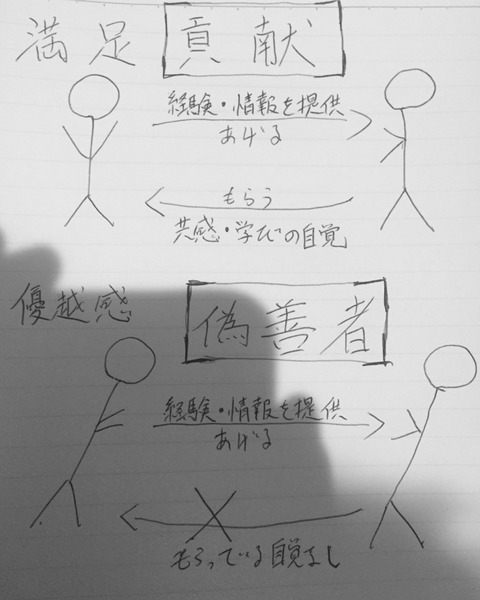 満足 貢献
経験・情報を提供
あげる
もらう
共感・学びの自覚
優越感 偽善者
経験・情報を提供
あげる
もらっている自覚なし